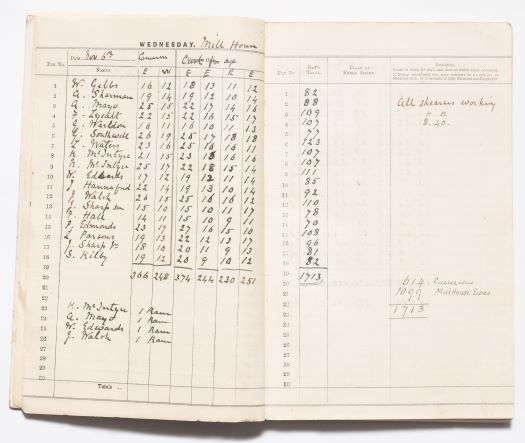 WEDNESDAY. Mill House
PEN NO. DATE Nov 6th Camerons Cast for age PEN NO DAY'S TOTAL. CLASS OF SHEEP SHORN. REMARKS.
NAMES. E W E E E E
1 W. Gibbs 16 12 18 13 11 12 1 82
2 A. Sharman 19 14 19 12 10 14 2 88 All shearers working
3 A. Mayo 25 15 22 17 14 16 3 109
4 F. Lysaft 22 15 22 16 15 17 4 107 8.40.
5 16 11 16 10 11 13 5 77
6 26 19 25 17 18 18 6 123
7 Waters 23 16 25 16 16 11 7 107
8 K. McIntyre 21 15 23 16 16 16 8 107
9 McIntyre 25 17 22 18 15 14 9 111
10 W. Edwards 17 12 19 12 11 14 10 85
11 J Hannaford 22 14 19 13 10 14 11 92
12 J. Walsh 26 15 25 16 16 12 12 110
13 J. Sharp sen 15 10 15 10 11 17 13 78
14 Hall 14 11 15 10 9 11 14 70
15 Edmonds 23 17 27 16 15 10 15 108
16 L. Parsons 19 13 22 12 13 17 16 96
17 J. Sharp Jr 18 10 20 11 9 13 17 81
18 S. Kilby 19 12 20 9 10 12 18 82
19 19
20 366 248 374 244 230 251 20 1713 614 Camerons
21 21 1099 Millhouse Ewes
22 22 1713
23 K. McIntyre 1 Ram 23
24 A. Mayo 1 Ram 24
25 W. Edwards 1 Ram 25
26 J. Walsh 1 Ram 26
27 27
28 28
29 29
30 30
Totals ..